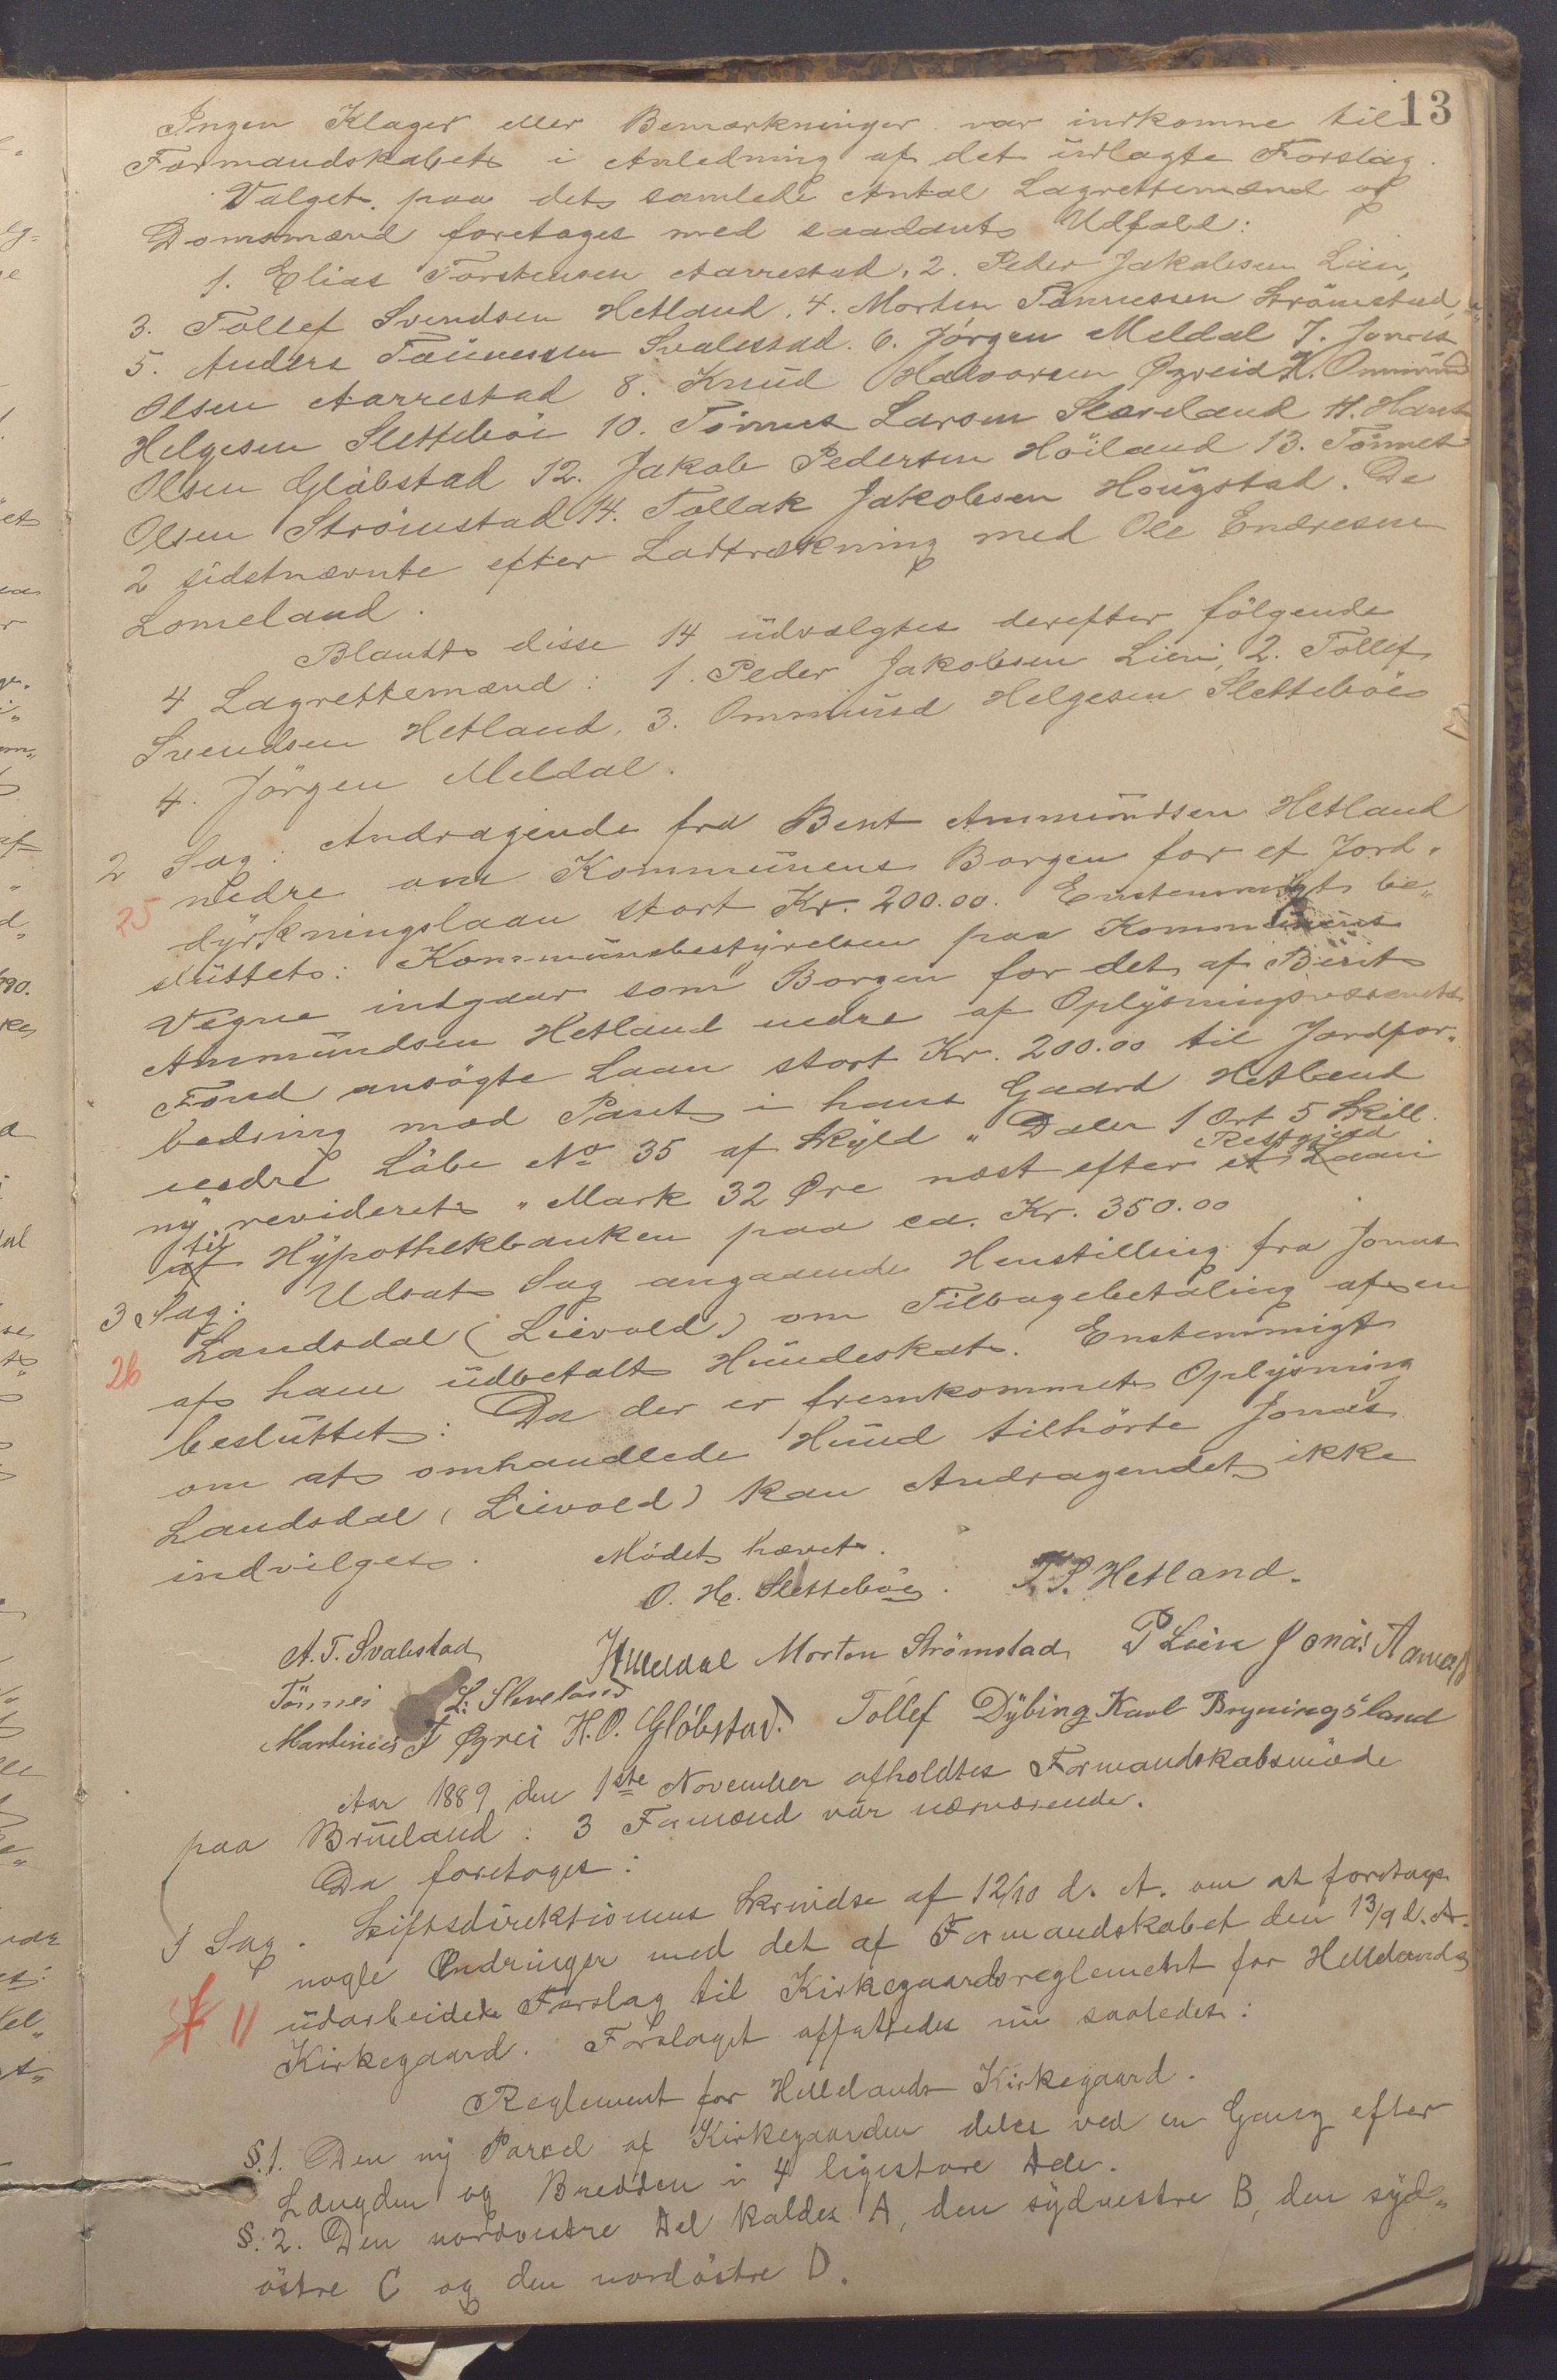 13
Ingen Klager eller Bemærkninger var indkomne til
Formandskabet i Anledning af det udlagte Forslag.
Valget paa det samlede Antal Lagrettemænd og
Domsmænd foretoges med saadant Udfald:
1. Elias Torstensen Aarrestad, 2. Peder Jakobsen Lien,
3. Tollef Svendsen Hetland, 4. Morten Tønnessen Strömstad,
5. Anders Tönnessen Svalestad. 6. Jörgen Meldal 7. Jonas
Olsen Aarrestad 8. Knud Halvorsen Øgreid 9. Ommund
Helgesen Sletteböe 10. Tönnes Larsen Skæveland 11. Hans
Olsen Glöbstad 12. Jakob Pedersen Höiland 13. Tönnes
Olsen Strömstad 14. Tollak Jakobsen Hougstad. De
2 sidstnævnte efter Lodtrækning med Ole Endresen
Lomeland.
Blandt disse 14 udvalgtes derefter fölgende
4 Lagrettemænd: 1. Peder Jakobsen Lien, 2. Tollef
Svendsen Hetland, 3. Ommund Helgesen Sletteböe
4. Jörgen Meldal.
2 Sag: Andragende fra Bent Ammundsen Hetland
25 nedre om Kommunens Borgen for et Jord-
dyrkningslaan stort Kr. 200.00. Enstemmigt be-
sluttet: Kommunebestyrelsen paa Kommunens
Vegne indgaar som Borgen for det af Berit
Ammundsen Hetland nedre af Oplysningsvæsenets
Fond ansögte Laan stort Kr. 200.00 til Jordfor-
bedring mod Pant i hans Gaard Hetland
nedre Löbe No 35 af Skyld " Daler 1 Ort 5 Skill.
ny revideret " Mark 32 Øre næst efter et Laan Restgjæld
af til Hypothekbanken paa ca. Kr. 350.00
3 Sag: Udsat Sag angaaende Henstilling fra Jonas
26 Landsdal (Lievold) om Tilbagebetaling af en
af ham udbetalt Hundeskat. Enstemmigt
besluttet: Da der er fremkommet Oplysning
om at omhandlede Hund tilhörte Jonas
Landsdal (Lievold) kan Andragendet ikke
indvilges.
Mödet hævet.
O. H. Slettebøe. T. S. Hetland.
A. T. Svalestad JMeldal Morten Strömstad P Lien Jonas Aarres
Tönnes L. Skeveland
Martinius T Øgrei H. O. Glöbstad. Tollef Dybing Karl Bryningsland
Aar 1889 den 1ste November afholdtes Formandskabsmöde
paa Brueland: 3 Formænd var nærværende.
Da foretoges:
1 Sag. Stiftsdirektionens Skrivelse af 12/10 d. A. om at foretage
nogle Endringer med det af Formandskabet den 13/9 d. A.
11 udarbeidede Forslag til Kirkegaardsreglement for Hellelands
Kirkegaard. Forslaget affattedes nu saaledes:
Reglement for Hellelands Kirkegaard.
§.1. Den ny Parcel af Kirkegaarden deles ved en Gang efter
Længden og Bredden i 4 ligestore Dele.
§.2. Den nordvestre Del kaldes A, den sydvestre B, den syd-
östre C og den nordöstre D.